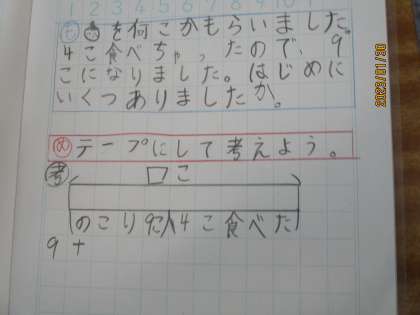 1 2 3 4 5 6 7 8 9 10 11
を何こかもらいました。
4こ食べちゃったので、9
こになりました。はじめに
いくつありましたか。
め テープにして考えよう。
考 □こ
のこり9こ 4こ食べた
9+